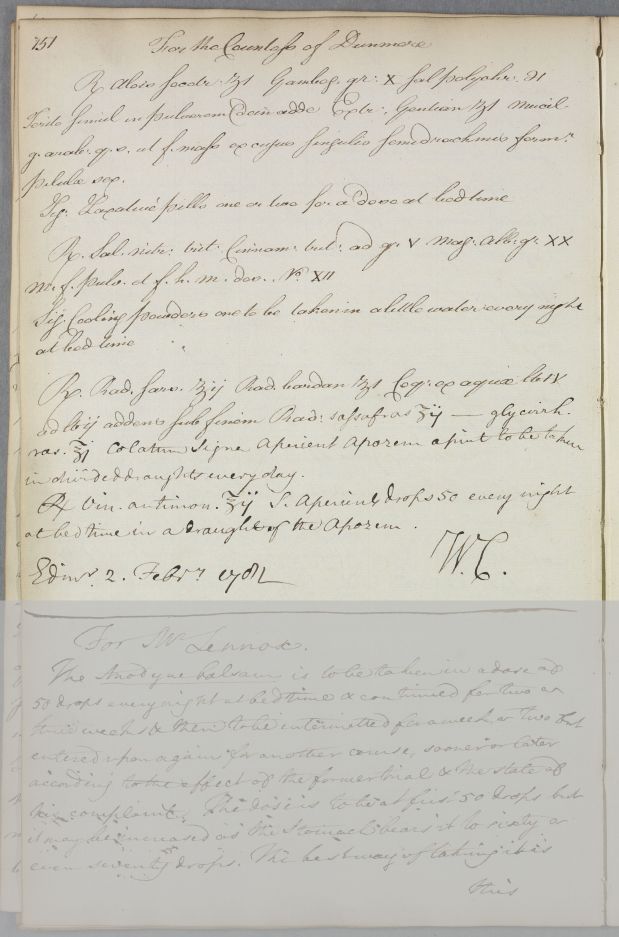 151
For the Countess of Dunmore
℞ Aloes socotr: ʒſ Gambog: gr: X Sal polychr: ℈ſ
Terito simul in pulverem Dein adde Extr: Gentian ʒſ Mucil-
g. arab: q. s. ut f. massa ex cujus singulis semidrachmis form:r
pilulæ sex.
Sig. Laxative pills one or two for a dose at bed time
℞. Sal. nitr: vitr: Cinnam: ad gr. V Mag: Alb: gr: XX
M. f. pulv. d. f. h. m. dos. No. XII
Sig. Cooling powders one to be taken in a little water every night
at bed time
℞. Rad. sars. ℥ij Rad. bardan ℥ſ Coq. ex aquæ lb IV
ad lb ij addens sub finem Rad: sassafras ʒij — glycirrh.
ras. ʒj Colatum Signe Aperient Apozem a pint to be taken
in divided draughts every day.
℞ Vin. antimon. ʒij S. Aperient drops 50 every night
at bed time in a draught of the Apozem.
Edinr. 2. Febry 1782 W. C.
For Mr Lennox.
The Anodyne balsam is to be taken in a dose of
50 drops every night at bedtime & continued for two or
three weeks & then to be intermitted for a week or two but
entered upon again for another course, sooner or later
according to the effect of the former trial & the state of
his complaint. The dose is to be at first 50 drops but
it may be increased as the stomach bears it to sixty or
even seventy drops. The best way of taking it is
this